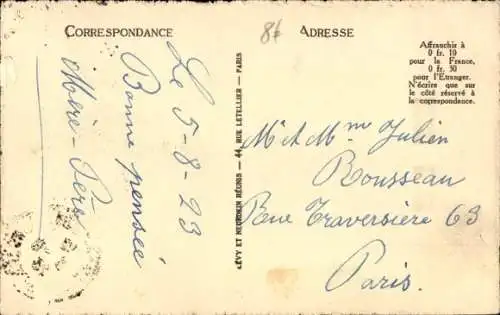 CORRESPONDANCE
ADRESSE
Affranchir à
0 fr. 10
pour la France,
0 fr. 30
pour l'Etranger.
N'écrire que sur
le côté réservé à
la correspondance.
Le 5-8-23
Bonne pensée
LÉVY ET NEURDEIN RÉUNIS — 44, RUE LETELLIER — PARIS
Mr & Mme Julien
Rousseau
Rue Traversière 63
Paris.